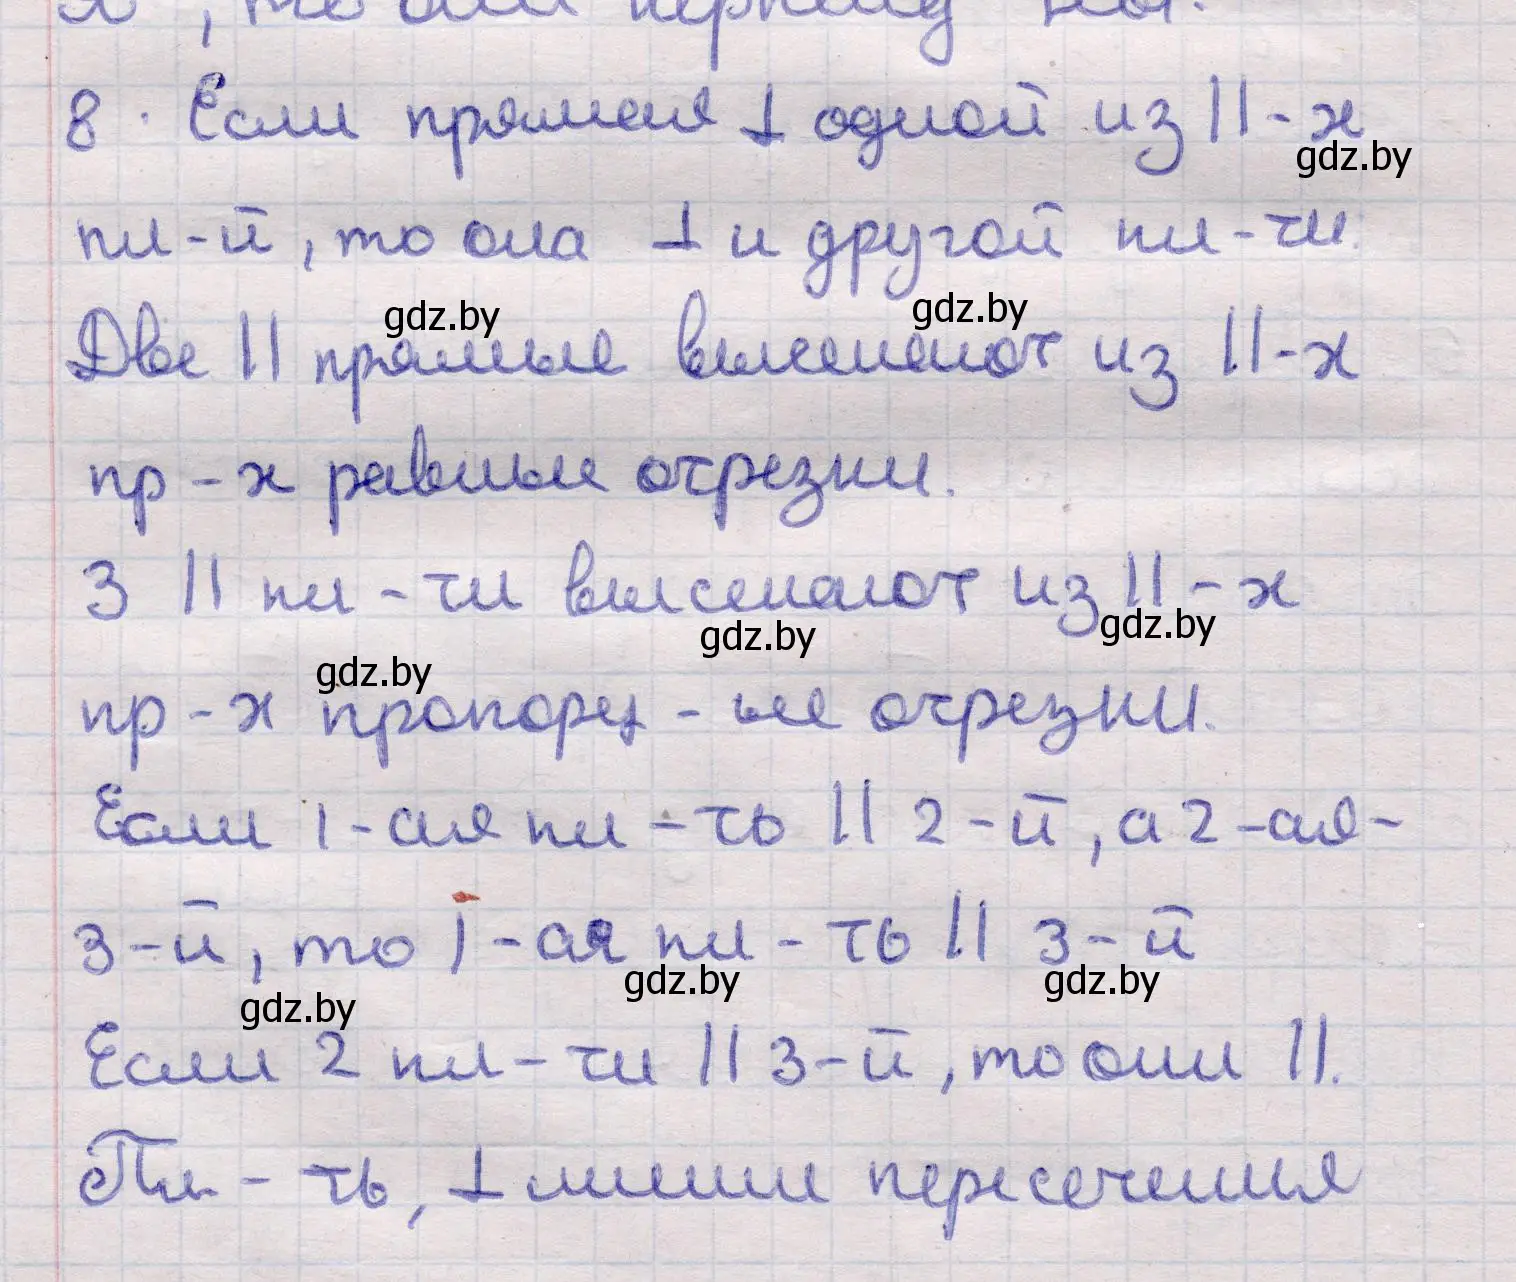 8. Если прямая ⊥ одной из ||-х
gdz.by
пл-й, то она ⊥ и другой пл-ти.
gdz.by gdz.by
Две || прямые высекают из ||-х
пр-х равные отрезки.
3 || пл-ти высекают из ||-х
gdz.by gdz.by
gdz.by
пр-х пропорц-ые отрезки.
Если 1-ая пл-ть || 2-й, а 2-ая-
3-й, то 1-ая пл-ть || 3-й
gdz.by gdz.by gdz.by
Если 2 пл-ти || 3-й, то они ||.
Пл-ть, ⊥ линии пересечения